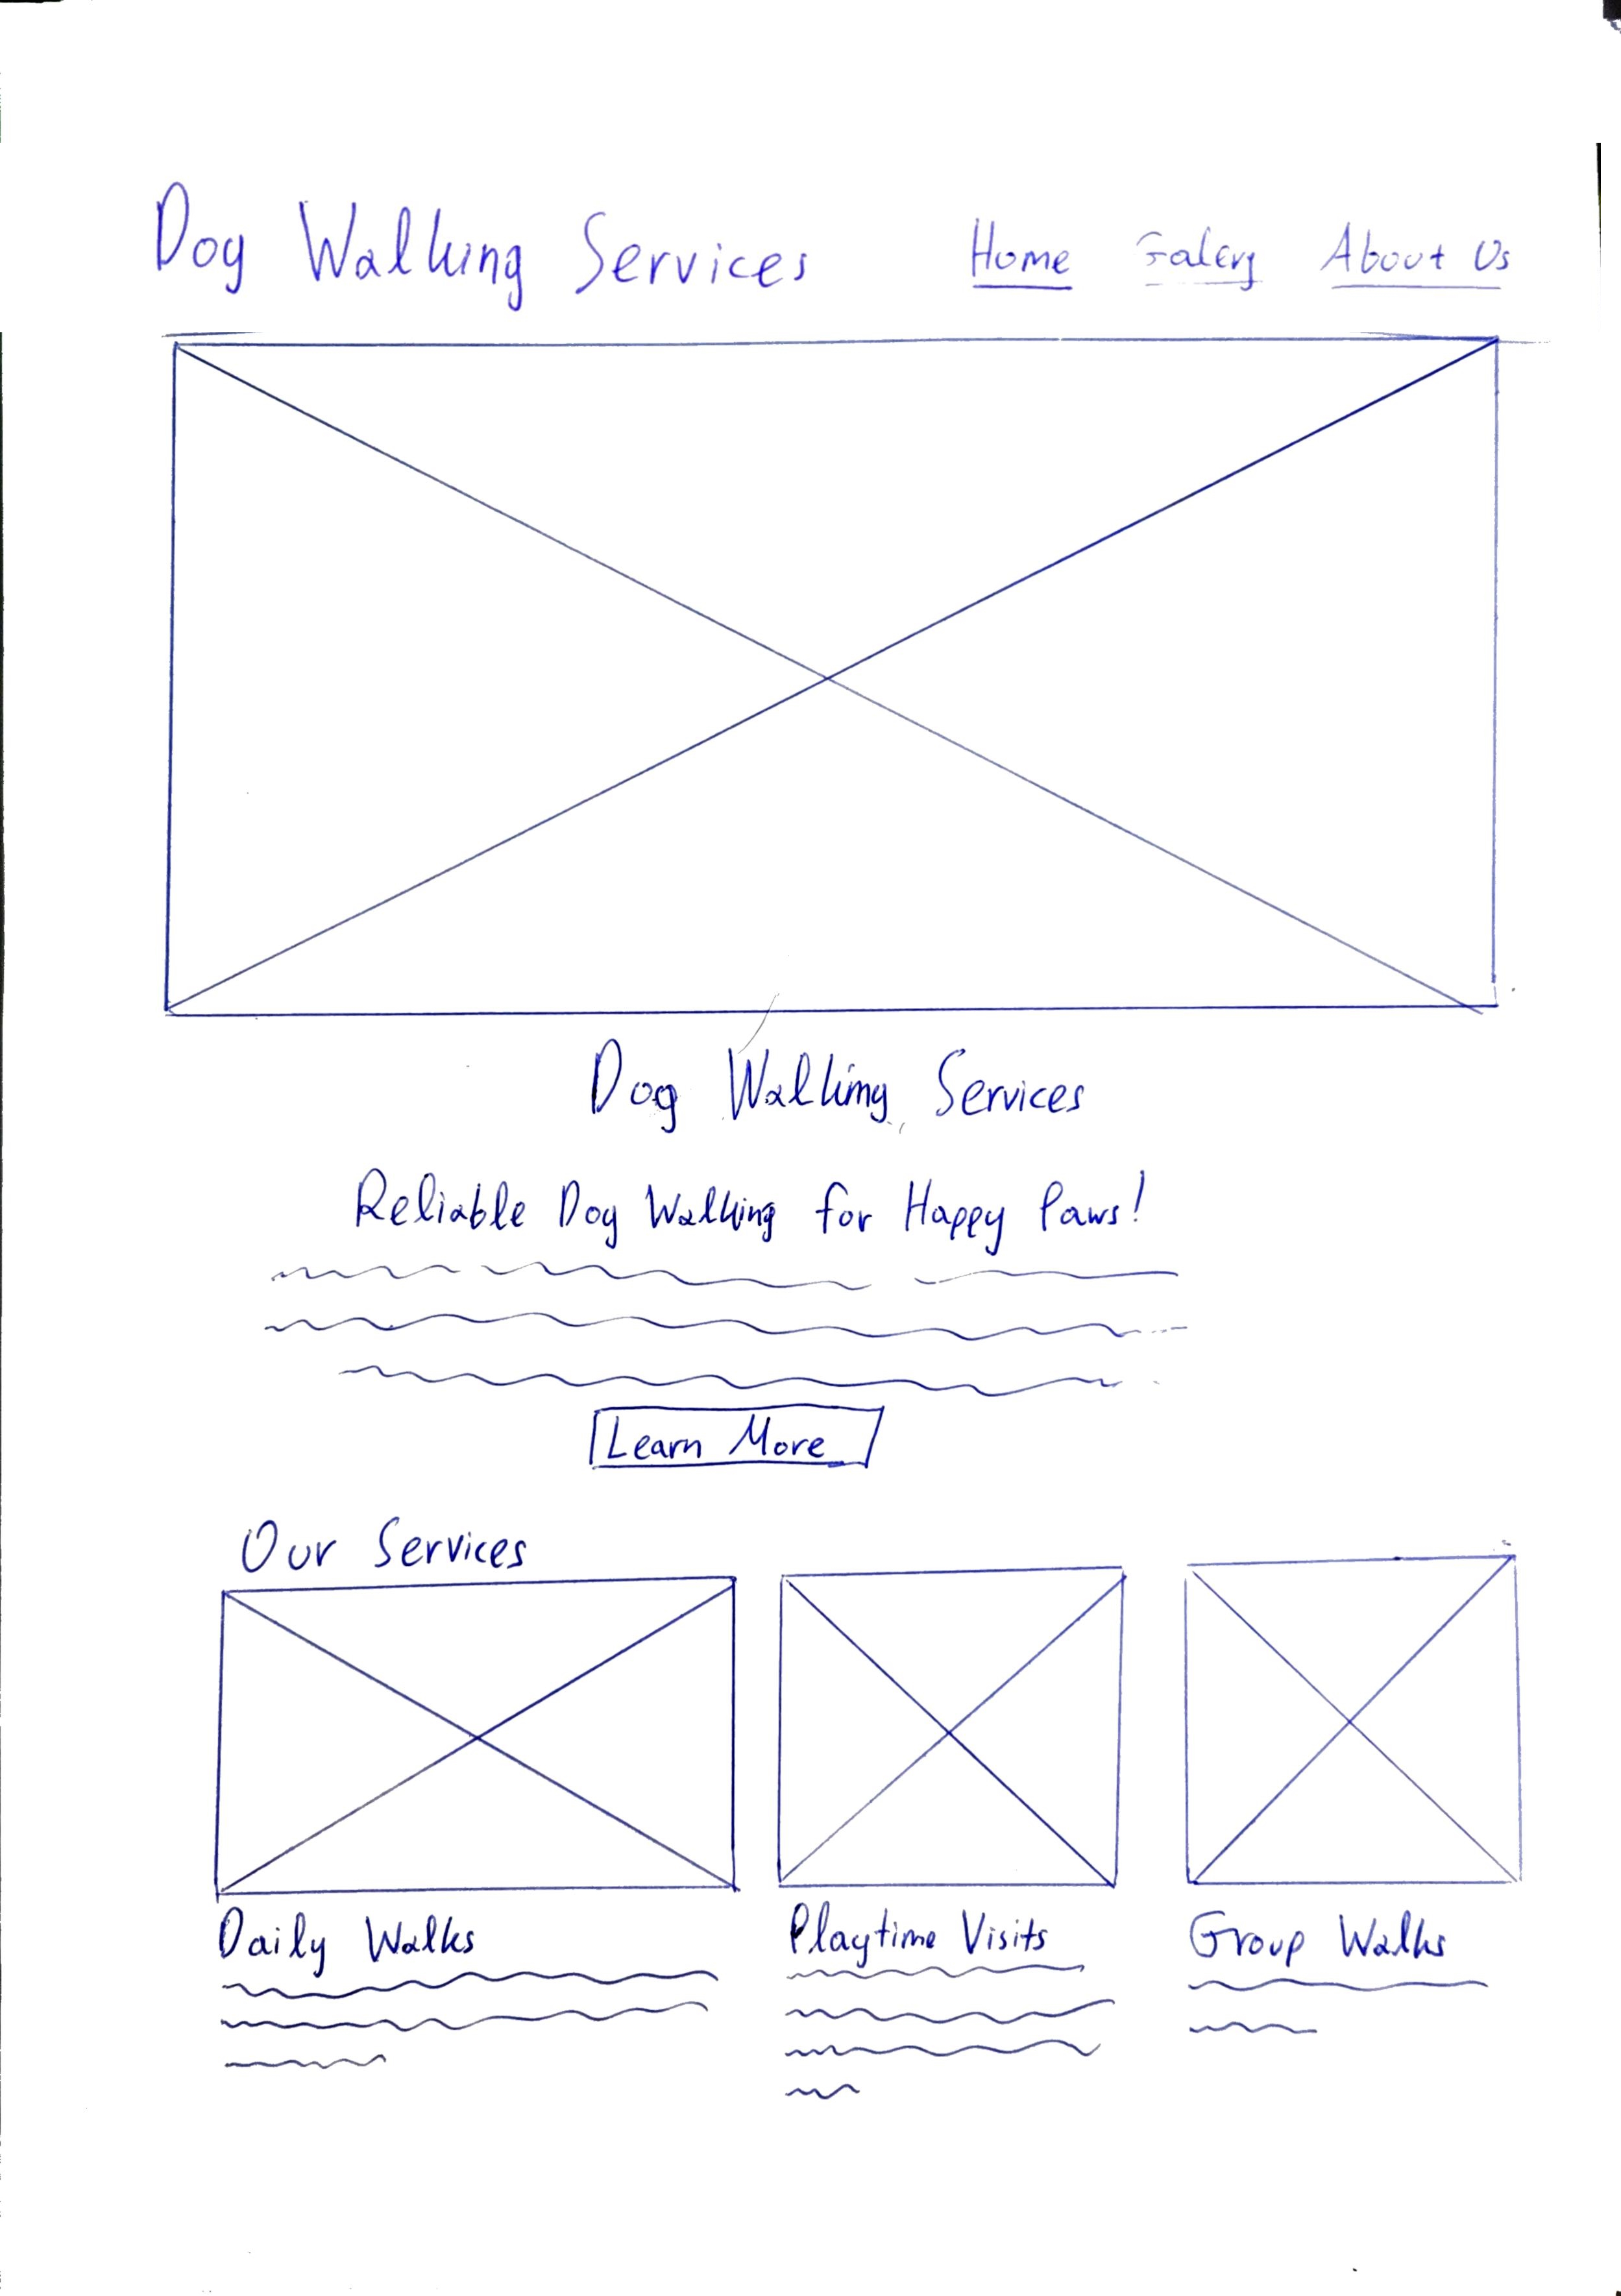 Dog Walking Services Home Galery About Us
Dog Walking Services
Reliable Dog Walking for Happy Paws!
Learn More
Our Services
Daily Walks Playtime Visits Group Walks